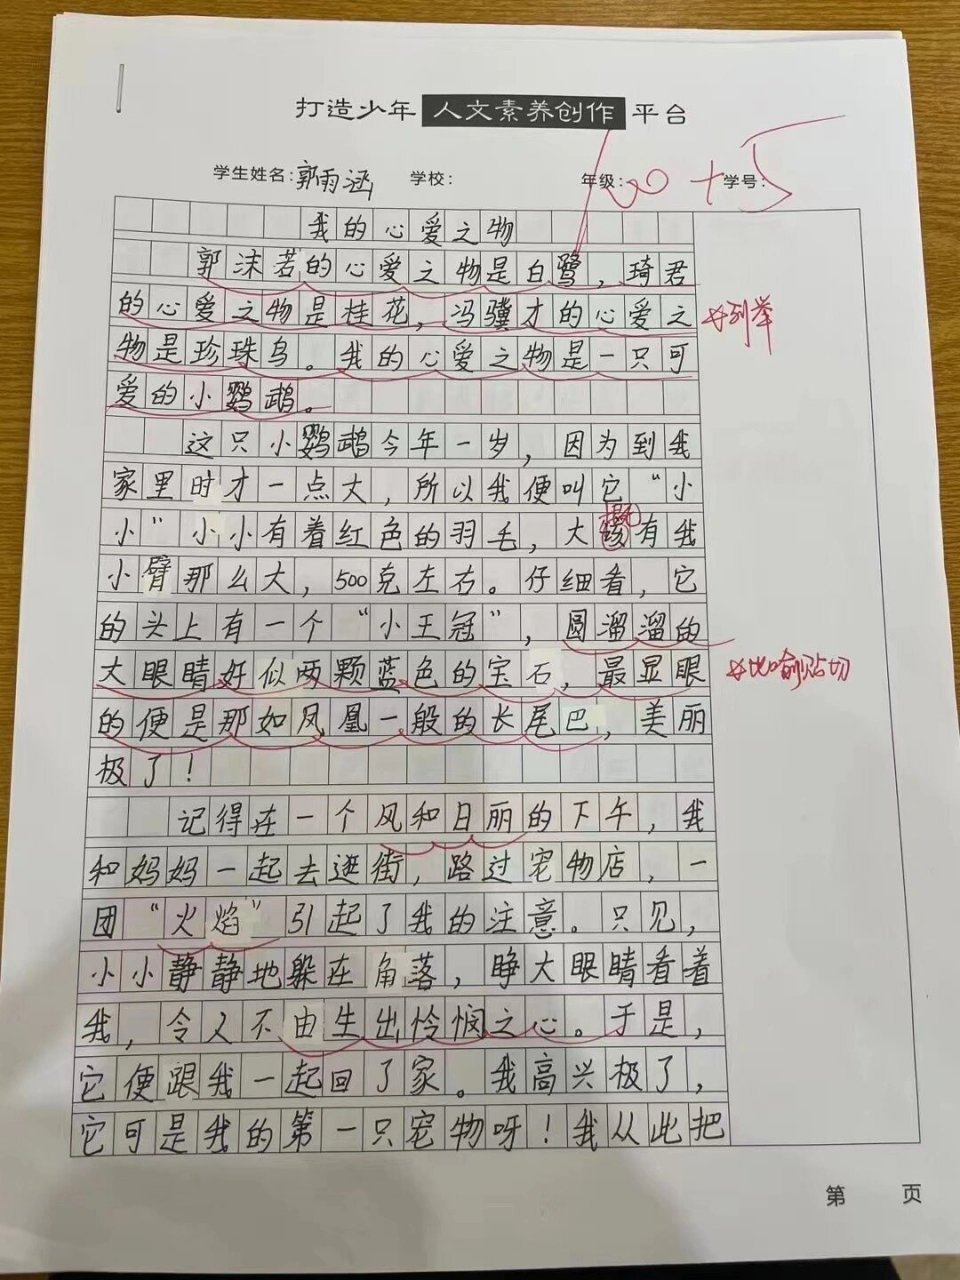 打造少年 人文素养创作 平台
学生姓名:郭雨涵 学校: 年级: 学号:
100+5
我的心爱之物
郭沫若的心爱之物是白鹭，琦君
的心爱之物是桂花，冯骥才的心爱之
列举
物是珍珠鸟。我的心爱之物是一只可
爱的小鹦鹉。
这只小鹦鹉今年一岁，因为到我
家里时才一点大，所以我便叫它“小
小”小小有着红色的羽毛，大该有我
概
小臂那么大，500克左右。仔细看，它
的头上有一个“小王冠”，圆溜溜的
大眼睛好似两颗蓝色的宝石，最显眼
比喻贴切
的便是那如凤凰一般的长尾巴，美丽
极了！
记得在一个风和日丽的下午，我
和妈妈一起去逛街，路过宠物店，一
团“火焰”引起了我的注意。只见，
小小静静地躲在角落，睁大眼睛看着
我，令人不由生出怜悯之心。于是，
它便跟我一起回了家。我高兴极了，
它可是我的第一只宠物呀！我从此把
第 页